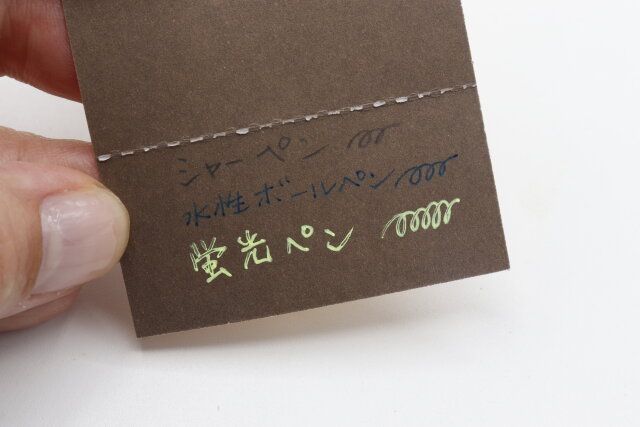 シャーペン
水性ボールペン
蛍光ペン